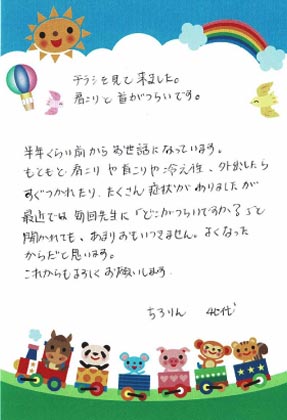 チラシを見て来ました。
肩こりと首がつらいです。
半年くらい前からお世話になっています。
もともと肩こりや首こりや冷え性、外出したら
すぐつかれたり、たくさん症状がありましたが
最近では毎回先生に「どこがつらいですか?」と
聞かれても、あまりおもいつきません。よくなった
からだと思います。
これからもよろしくお願いします。
ちろりん 40代